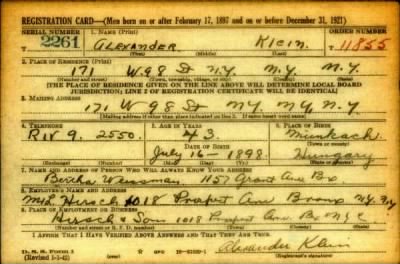 REGISTRATION CARD—(Men born on or after February 17, 1897 and on or before December 31, 1921)
SERIAL NUMBER 1. NAME (Print) ORDER NUMBER
2261 ALEXANDER Klein 11855
(First) (Middle) (Last)
2. PLACE OF RESIDENCE (Print)
171 W 98 St N.Y. N.Y. N.Y.
(Number and street) (Town, township, village, or city) (County) (State)
[THE PLACE OF RESIDENCE GIVEN ON THE LINE ABOVE WILL DETERMINE LOCAL BOARD
JURISDICTION; LINE 2 OF REGISTRATION CERTIFICATE WILL BE IDENTICAL]
3. MAILING ADDRESS
171 W 98 St NY NY N.Y.
[Mailing address if other than place indicated on line 2. If same insert word same]
4. TELEPHONE 5. AGE IN YEARS 6. PLACE OF BIRTH
RIV 9. 2550. 43 Munkach
DATE OF BIRTH (Town or county)
July 16 - 1898 Hungary
(Exchange) (Number) (Mo.) (Day) (Yr.) (State or country)
7. NAME AND ADDRESS OF PERSON WHO WILL ALWAYS KNOW YOUR ADDRESS
Bertha 1157 Grant Ave Bx
8. EMPLOYER'S NAME AND ADDRESS
Hirsch 1018 Prospect Ave Bronx N.Y.
9. PLACE OF EMPLOYMENT OR BUSINESS
Hirsch & Son 1018 Prospect Ave. Bx N Y C
(Number and street or R. F. D. number) (Town) (County) (State)
I AFFIRM THAT I HAVE VERIFIED ABOVE ANSWERS AND THAT THEY ARE TRUE.
D. S. S. Form 1
(Revised 1-1-42) Alexander Klein
(Registrant's signature)